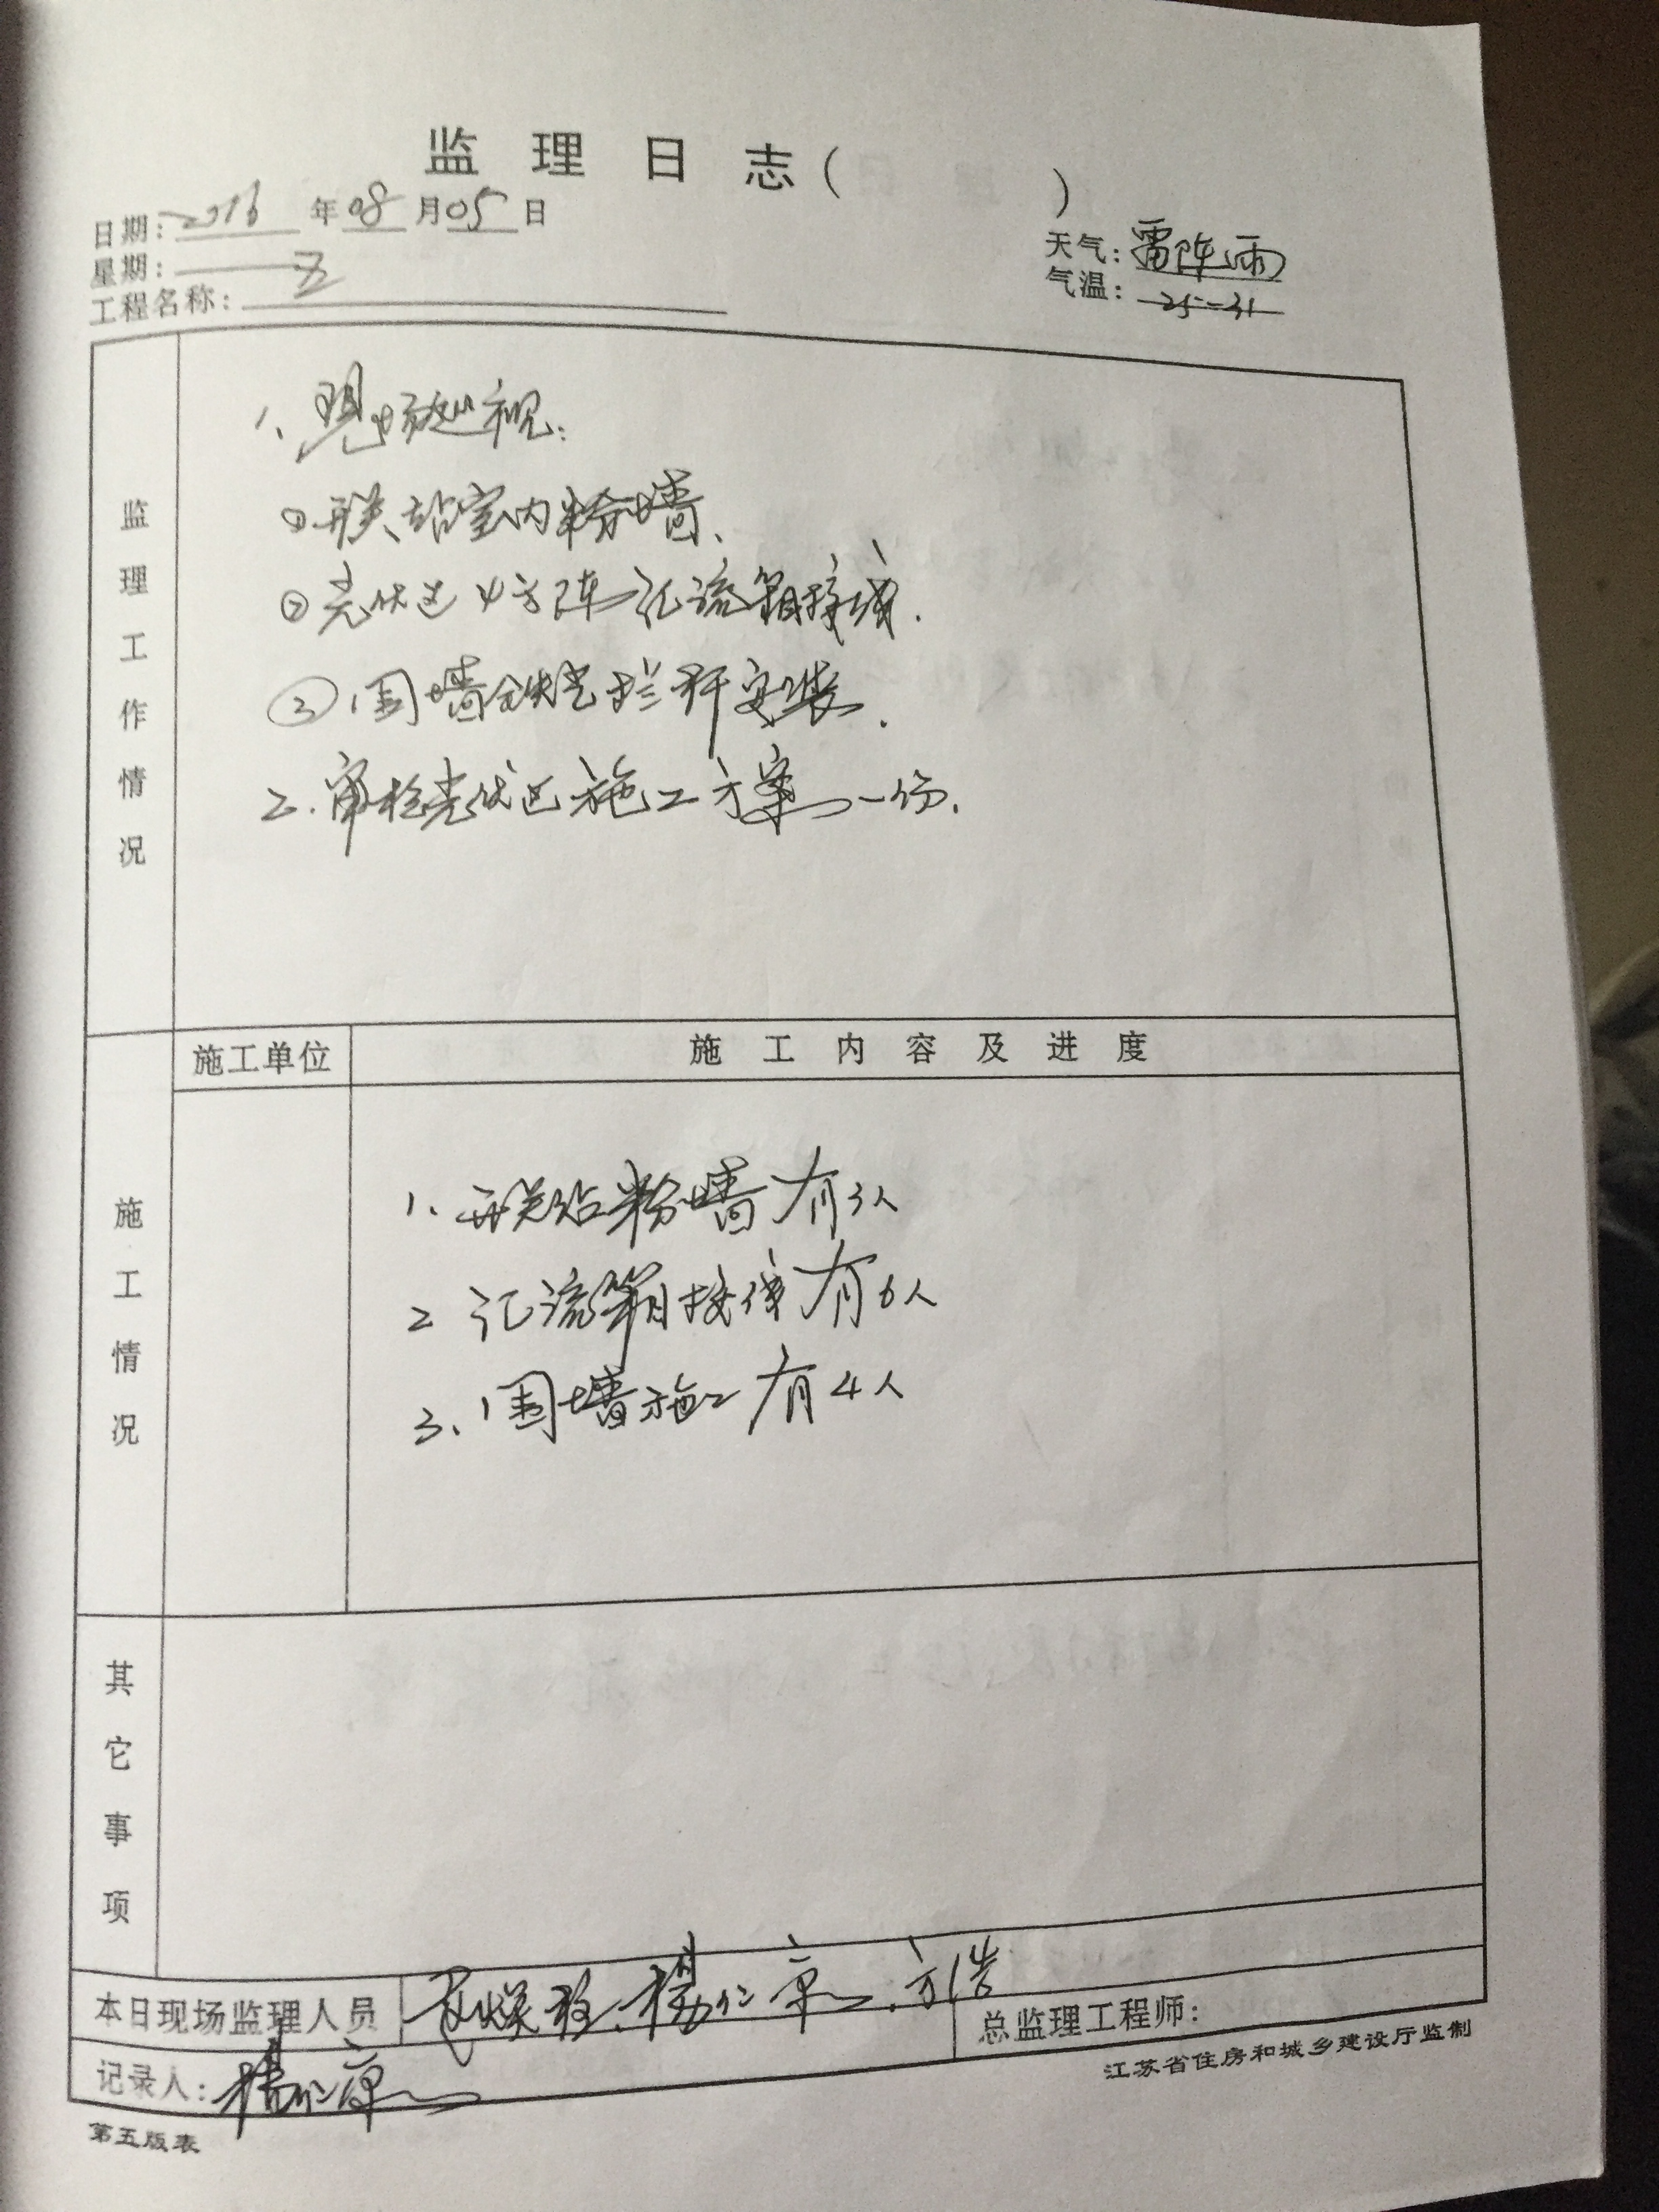 监理日志(  )
日期:2016年08月05日
星期:五
天气:雷阵雨
气温:25-31
工程名称:
监理工作情况
1、现场巡视:
①开关站室内粉墙、
②光伏区4方阵汇流箱接线.
③围墙铁艺栏杆安装.
2.审检光伏区施工方案一份.
施工单位
施工内容及进度
施工情况
1、开关站粉墙有3人
2 汇流箱接线有6人
3、围墙施工有4人
其它事项
本日现场监理人员 杨仁京、方浩
总监理工程师:
记录人:杨仁京
江苏省住房和城乡建设厅监制
第五版表